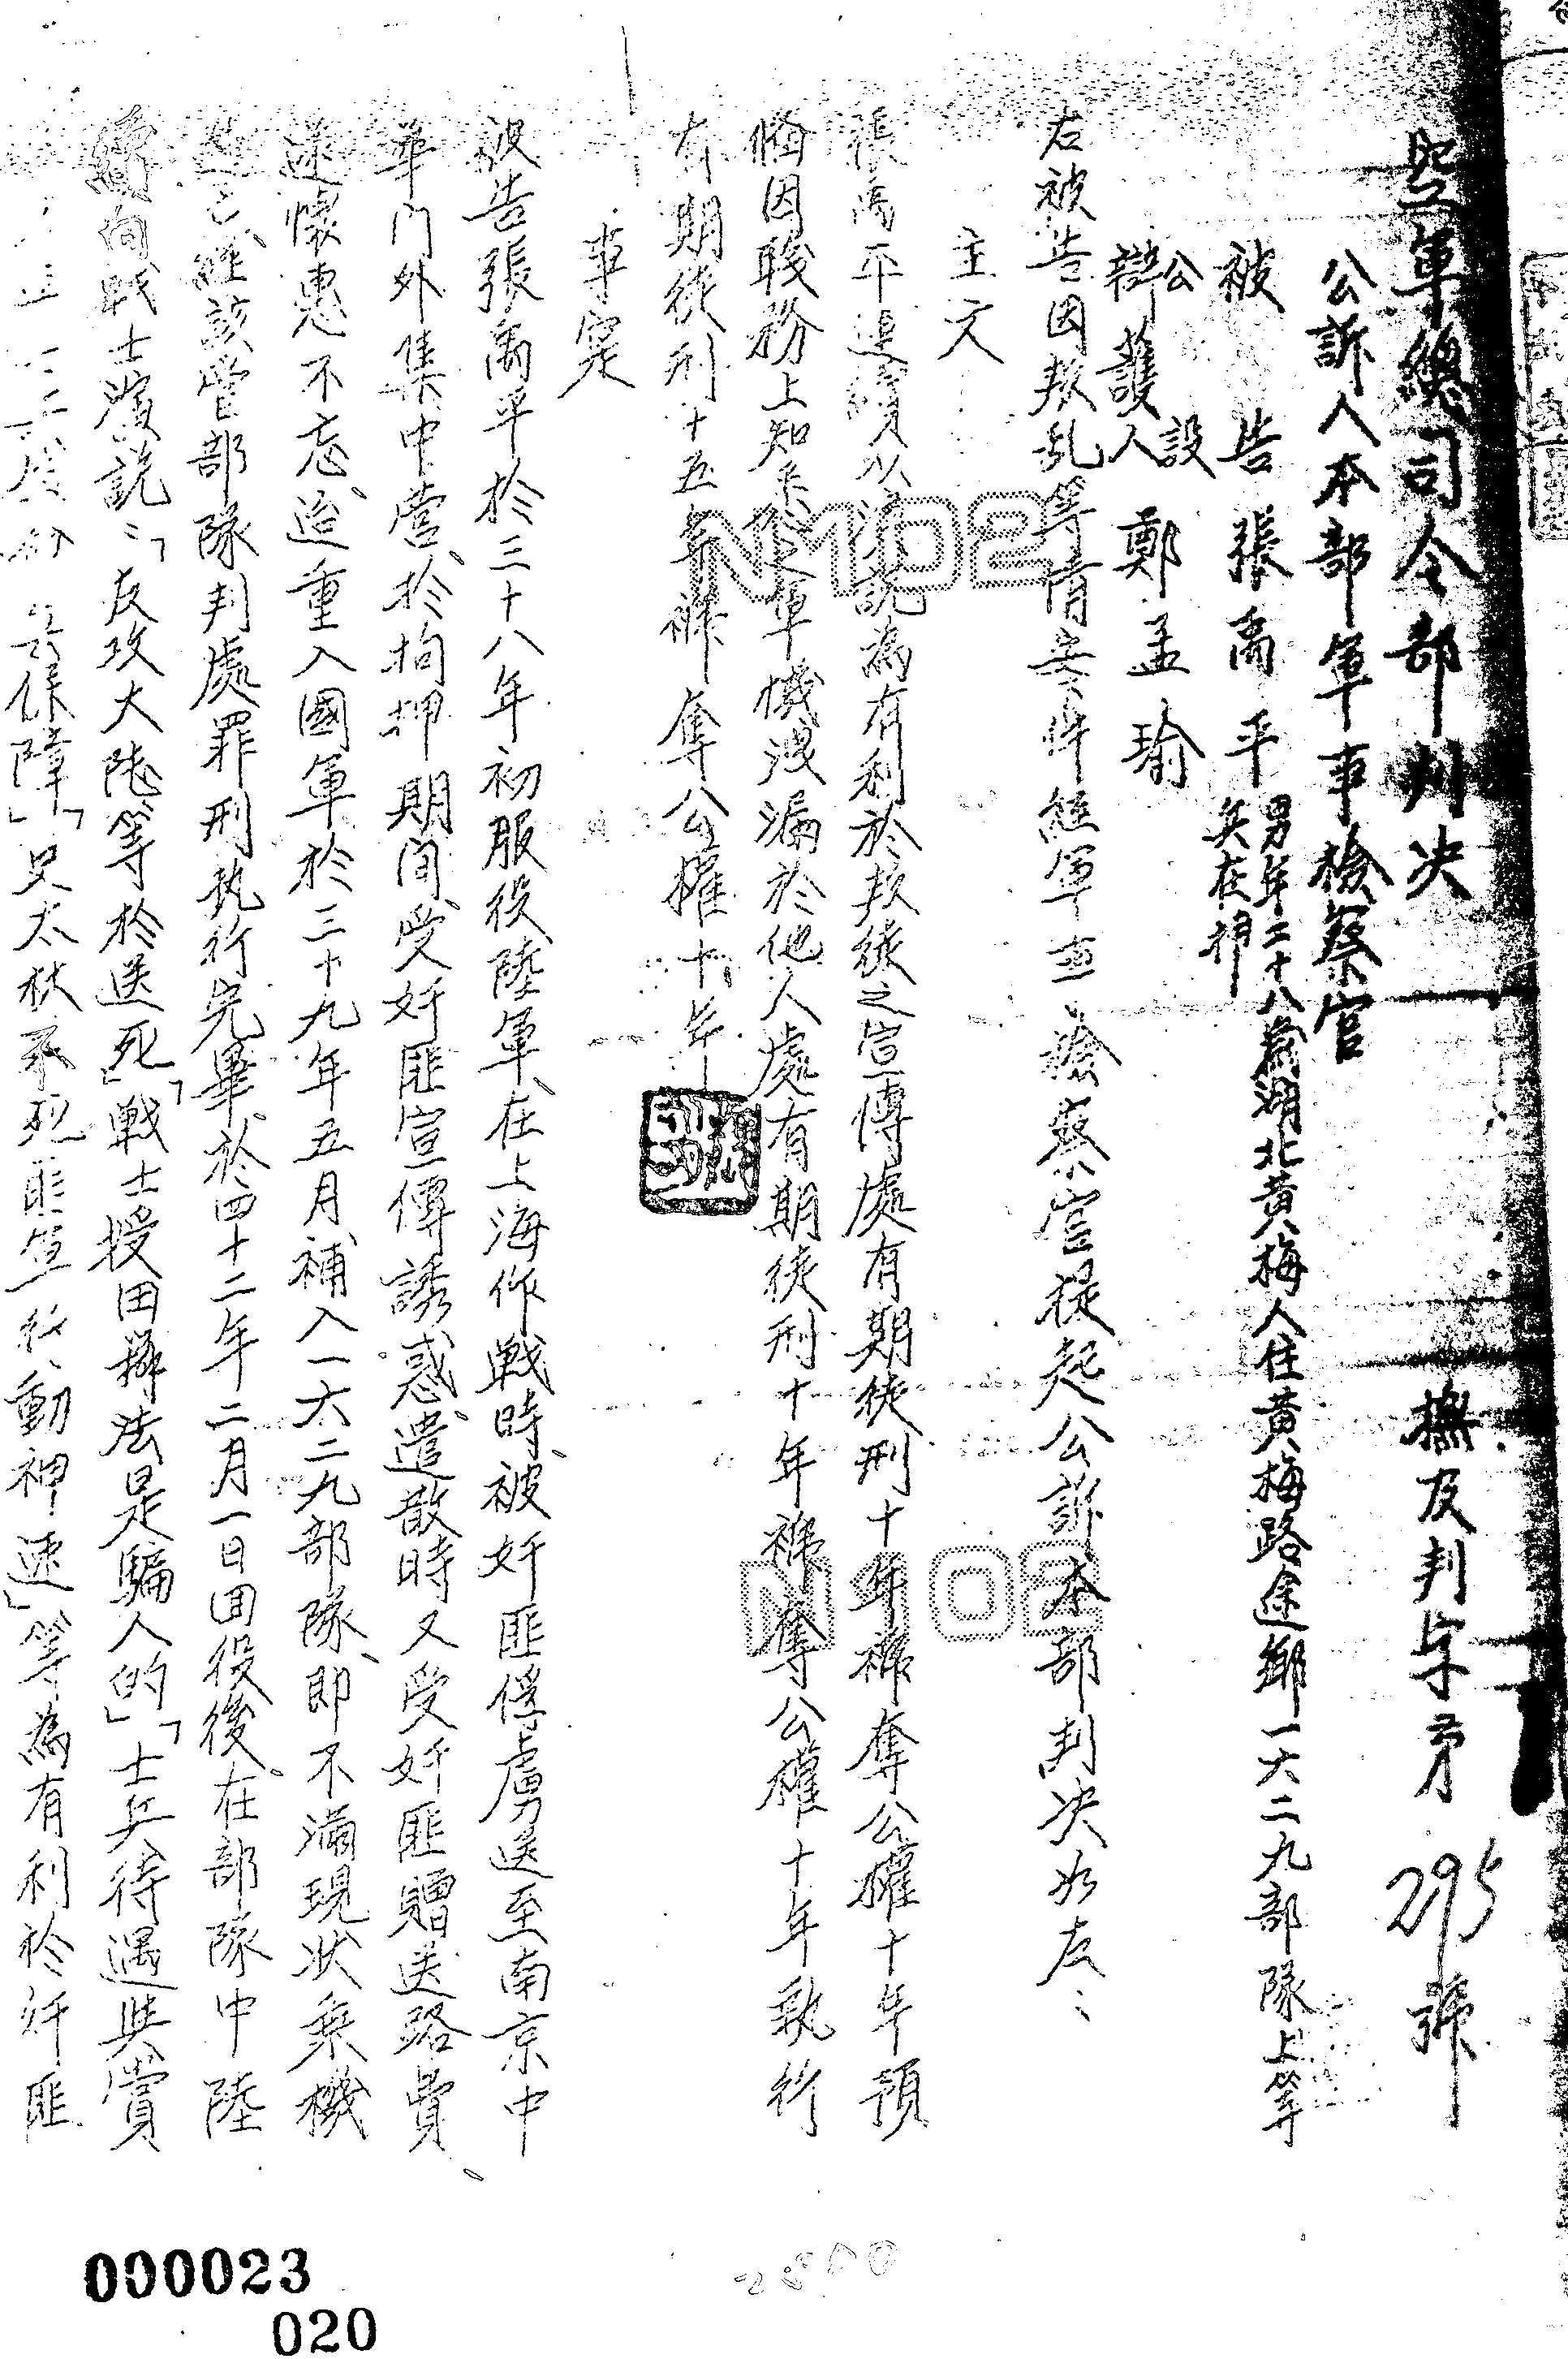 空軍總司令部判決 撫友判字第295號
公訴人本部軍事檢察官
被告張禹平 男年二十八歲湖北黃梅人住黃梅路途鄉一六二九部隊上等
兵在押
公設
辯護人 鄭孟瑜
右被告因叛乱等情案件經軍事檢察官提起公訴本部判決如左：
主文
張禹平連續以演說為有利於叛徒之宣傳處有期徒刑十年褫奪公權十年預
備因職務上知悉之軍機洩漏於他人處有期徒刑十年褫奪公權十年執行
有期徒刑十五年褫奪公權十年
事實
被告張禹平於三十八年初服役陸軍、在上海作戰時、被奸匪俘虜送至南京中
華门外集中營、於拘押期间、受奸匪宣傳誘惑、遣散時又受奸匪贈送路費、
遂懷惠不忘、迨重入國軍於三十九年五月補入一六二九部隊、即不滿現狀乘機
已經該管部隊判處罪刑执行完畢、於四十二年二月一日回役後、在部隊中陸
續向戰士演說：「反攻大陸等於送死」「戰士授田辦法是騙人的」「士兵待遇與賞
保障」「史太林不死匪 行動神速」等為有利於奸匪
N102
N102
000023
020